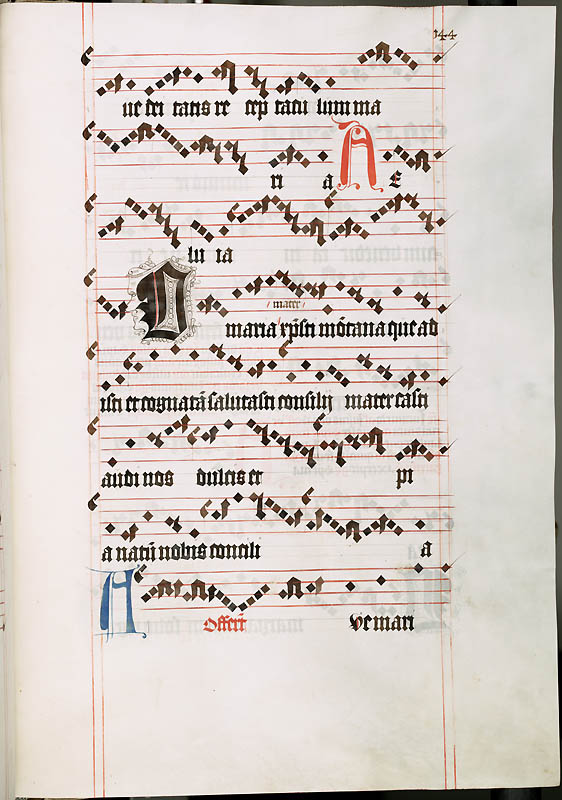 144
ue dei tatis re cep tacu lum ma
ri a A E
lu ia
mater
O maria xpsti mōtana que ab
isti et cognatā salutasti consilij mater casti
audi nos dulcis et pi
a natū nobis concili a
A Offert ve mari